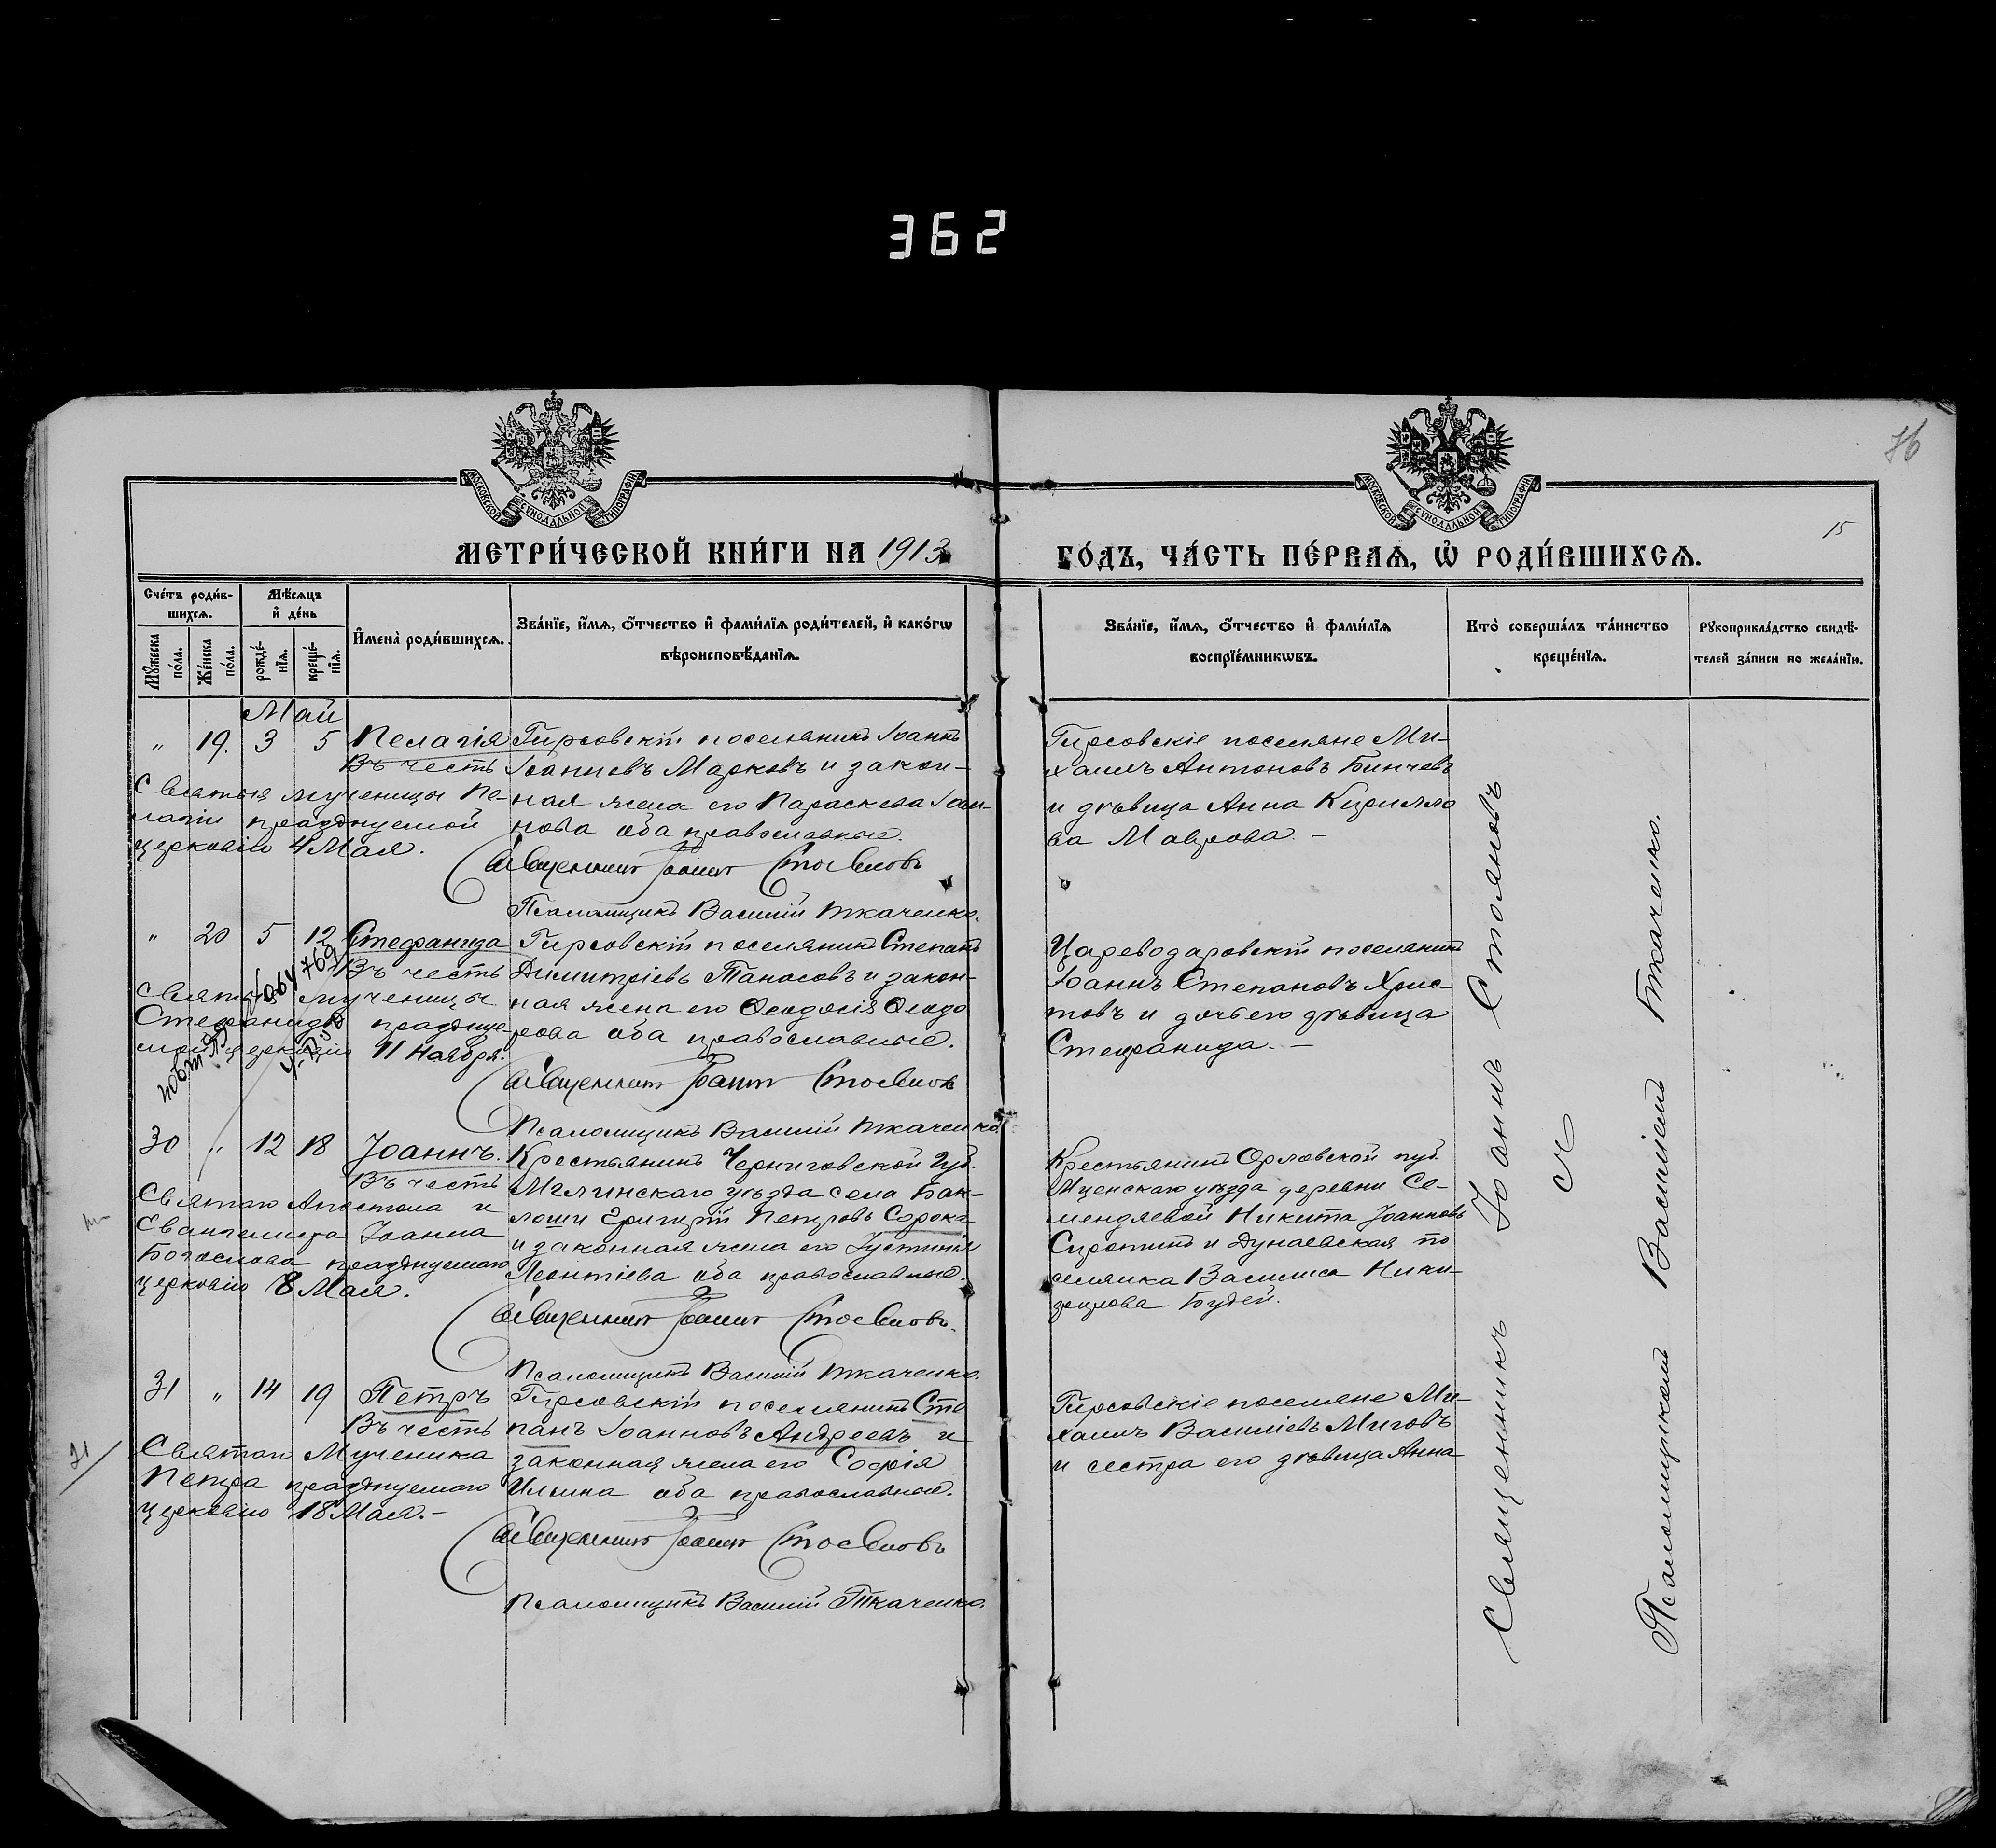 362
76
15
МОСКОВСКОЙ СѴНОДАЛЬНОЙ ТИПОГРАФІИ
МОСКОВСКОЙ СѴНОДАЛЬНОЙ ТИПОГРАФІИ
МЕТРИ́ЧЕСКОЙ КНИ́ГИ НА 1913
ГО́ДЪ, ЧА́СТЬ ПЕ́РВАѦ, Ѡ҆ РОДИ́ВШИХСѦ.
Сче́тъ роди́в-
шихсѧ.
Мѣ́сѧцъ
и҆ де́нь
Мꙋ́жеска
по́ла.
Же́нска
по́ла.
рожде́-
нїѧ.
креще́-
нїѧ.
И҆мена̀ роди́вшихсѧ.
Зва́нїе, и҆́мѧ, ѻ҆́тчество и҆ фами́лїѧ роди́телей, и҆ како́гѡ
вѣроисповѣ́данїѧ.
Зва́нїе, и҆́мѧ, ѻ҆́тчество и҆ фами́лїѧ
воспрїе́мникѡвъ.
Кто̀ соверша́лъ та́инство
креще́нїѧ.
Рꙋкоприкла́дство свидѣ́-
телей за́писи по жела́нїю.
Май
" 19. 3 5 Пелагія
Въ честь
Святыя мученицы Пе-
лагіи празднуемой
церковію 4 Мая.
Гирсовскій поселянинъ Іоаннъ
Іоанновъ Марковъ и закон-
ная жена его Параскева Іоан-
нова оба православные.
Священникъ Іоаннъ Стояновъ
Псаломщикъ Василій Ткаченко.
Гирсовскіе поселяне Ми-
хаилъ Антоновъ Бинчевъ
и дѣвица Анна Кирилло
ва Маврова. –
" 20 5 12 Стефанида
Въ честь
Святыя мученицы
Стефаниды празднуе-
мой церковію 11 Ноября.
Гирсовскій поселянинъ Степанъ
Димитріевъ Танасовъ и закон-
ная жена его Ѳеодосія Ѳеодо
рова оба православные.
Священникъ Іоаннъ Стояновъ
Псаломщикъ Василій Ткаченко.
Цареводаровскій поселянинъ
Іоаннъ Степановъ Хрис-
товъ и дочь его дѣвица
Стефанида. –
30 " 12 18 Іоаннъ.
Въ честь
Святаго Апостола и
Евангелиста Іоанна
Богослова празднуемаго
церковію 8 Мая.
Крестьянинъ Черниговской губ.
Мглинскаго уѣзда села Бак-
лани Григорій Петровъ Сорока
и законная жена его Іустинія
Леонтіева оба православные.
Священникъ Іоаннъ Стояновъ.
Псаломщикъ Василій Ткаченко.
Крестьянинъ Орловской губ.
Мценскаго уѣзда деревни Се-
мендяевой Никита Іоанновъ
Сиротинъ и Дунаевская по
селянка Василиса Ники-
форова Будей.
31 " 14 19 Петръ
Въ честь
Святаго Мученика
Петра празднуемаго
церковію 18 Мая. –
Гирсовскій поселянинъ Сте
панъ Іоанновъ Андреевъ и
законная жена его Софія
Ильина оба православные.
Священникъ Іоаннъ Стояновъ
Псаломщикъ Василій Ткаченко.
Гирсовскіе поселяне Ми-
хаилъ Василіевъ Миговъ
и сестра его дѣвица Анна
Священникъ Іоаннъ Стояновъ
съ
Псаломщикомъ Василіемъ Ткаченко.